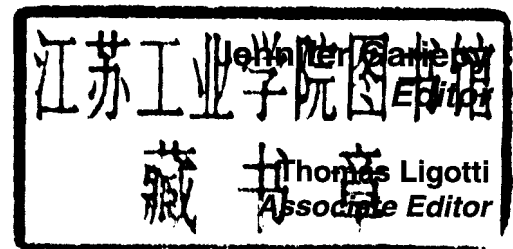 江苏工业学院图书馆
Jennifer Gariepy
Editor
藏书章
Thomas Ligotti
Associate Editor